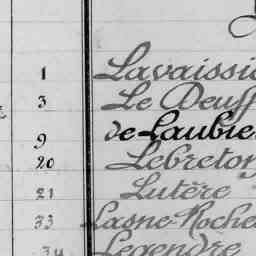 1 Lavaissi
3 Le Deuff
9 de Laubie
20 Lebreton
21 Lutère
33 Lasne-Roche
34 Legendre